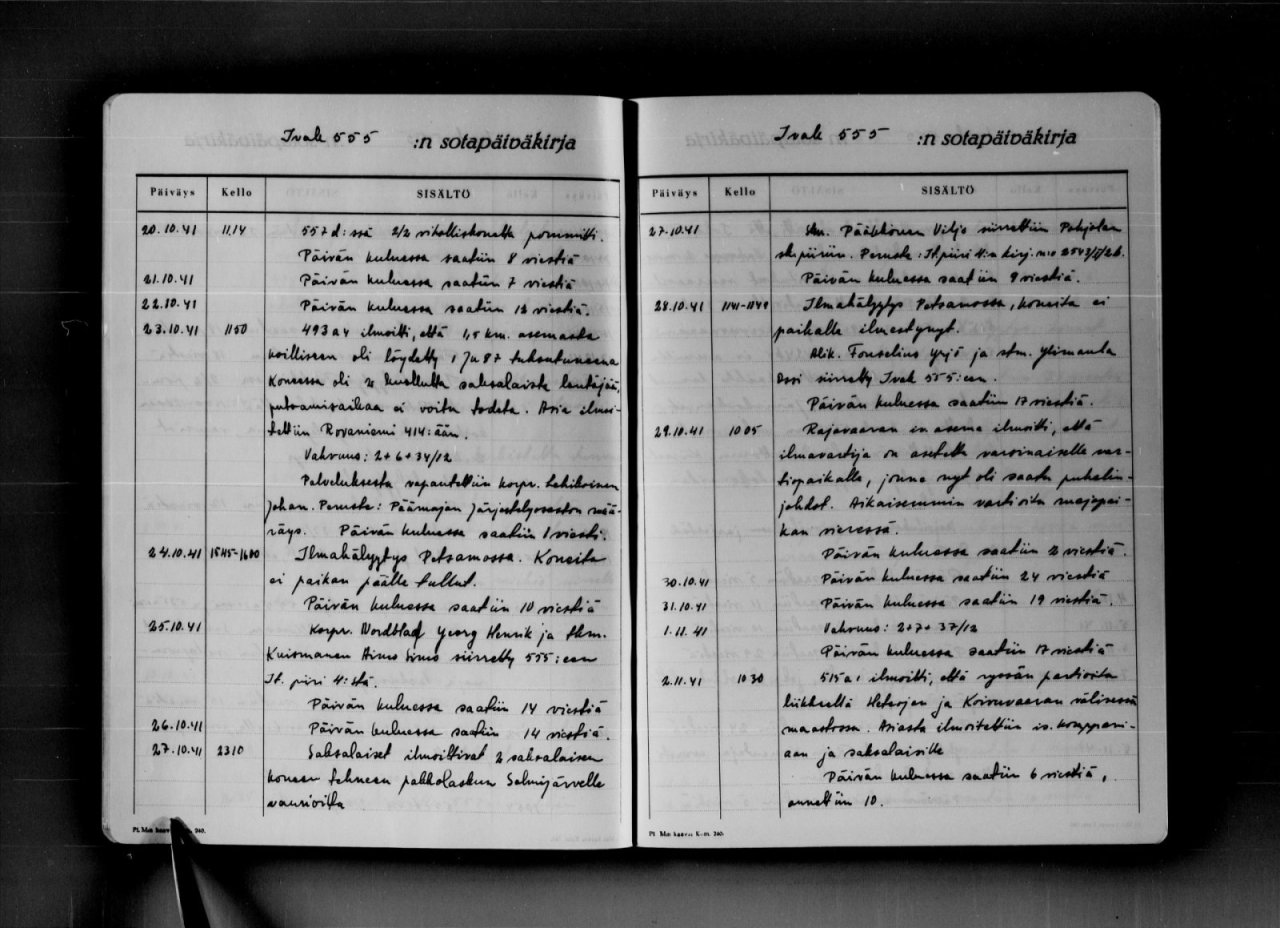 Ivak 555 :n sotapäiväkirja
Päiväys Kello SISÄLTÖ
20.10.41 11.14 557 d:ssä 2/2 vihollisKonetta pommitti.
Päivän kuluessa saatiin 8 viestiä
21.10.41 Päivän kuluessa saatiin 7 viestiä
22.10.41 Päivän kuluessa saatiin 12 viestiä.
23.10.41 1150 493 a 4 ilmoitti, että 1,5 km. asemasta
koilliseen oli löydetty 1 Ju 87 tuhoutuneena
Koneessa oli 2 kuollutta saksalaista lentäjää,
putoamisaikaa ei voitu todeta. Asia ilmoi-
tettiin Rovaniemi 414:ään.
Vahvuus: 2+6+34/12
Palveluksesta vapautettiin korpr. Lehikoinen
Johan. Peruste: Päämajan Järjestelyosaston mää-
räys. Päivän kuluessa saatiin 1 viesti.
24.10.41 1545-1600 Ilmahälyytys Petsamossa. Koneita
ei paikan päälle tullut.
Päivän kuluessa saatiin 10 viestiä
25.10.41 Korpr. Nordblad Georg Henrik ja stm.
Kuismanen Aimo siirretty 555:een
It. piiri 4:stä.
Päivän kuluessa saatiin 14 viestiä
26.10.41 Päivän kuluessa saatiin 14 viestiä.
27.10.41 2310 Saksalaiset ilmoittivat 2 saksalaisen
koneen tehneen pakkolaskun Salmijärvelle
vaurioitta
Pt. Min kaava K.m. 240.
Ivak 555 :n sotapäiväkirja
Päiväys Kello SISÄLTÖ
27.10.41 Stm. Pääkkönen Viljo siirrettiin Pohjolan
sk.piiriin. Peruste: It.piiri 4:n kirj. n:o 2543/I/26.
Päivän kuluessa saatiin 9 viestiä.
28.10.41 1141-1149 Ilmahälyytys Petsamossa, koneita ei
paikalle ilmestynyt.
Alik. Fonselius Yrjö ja stm. Ylimaula
Ossi siirretty Ivak 555:een.
Päivän kuluessa saatiin 17 viestiä.
29.10.41 1005 Rajavaaran iv asema ilmoitti, että
ilmavartija on asetettu varsinaiselle var-
tiopaikalle, jonne nyt oli saatu puhelin-
johdot. Aikaisemmin vartioitu majapai-
kan vieressä.
Päivän kuluessa saatiin 2 viestiä.
30.10.41 Päivän kuluessa saatiin 24 viestiä
31.10.41 Päivän kuluessa saatiin 19 viestiä.
1.11.41 Vahvuus: 2+7+37/12
Päivän kuluessa saatiin 17 viestiä
2.11.41 1030 515 a 1 ilmoitti, että ryssän partioita
liikkeellä Heteojan ja Koivuvaaran välisessä
maastossa. Asiasta ilmoitettiin is. komppani-
aan ja saksalaisille
Päivän kuluessa saatiin 6 viestiä,
annettiin 10.
Pt. Min kaava K.m. 240.